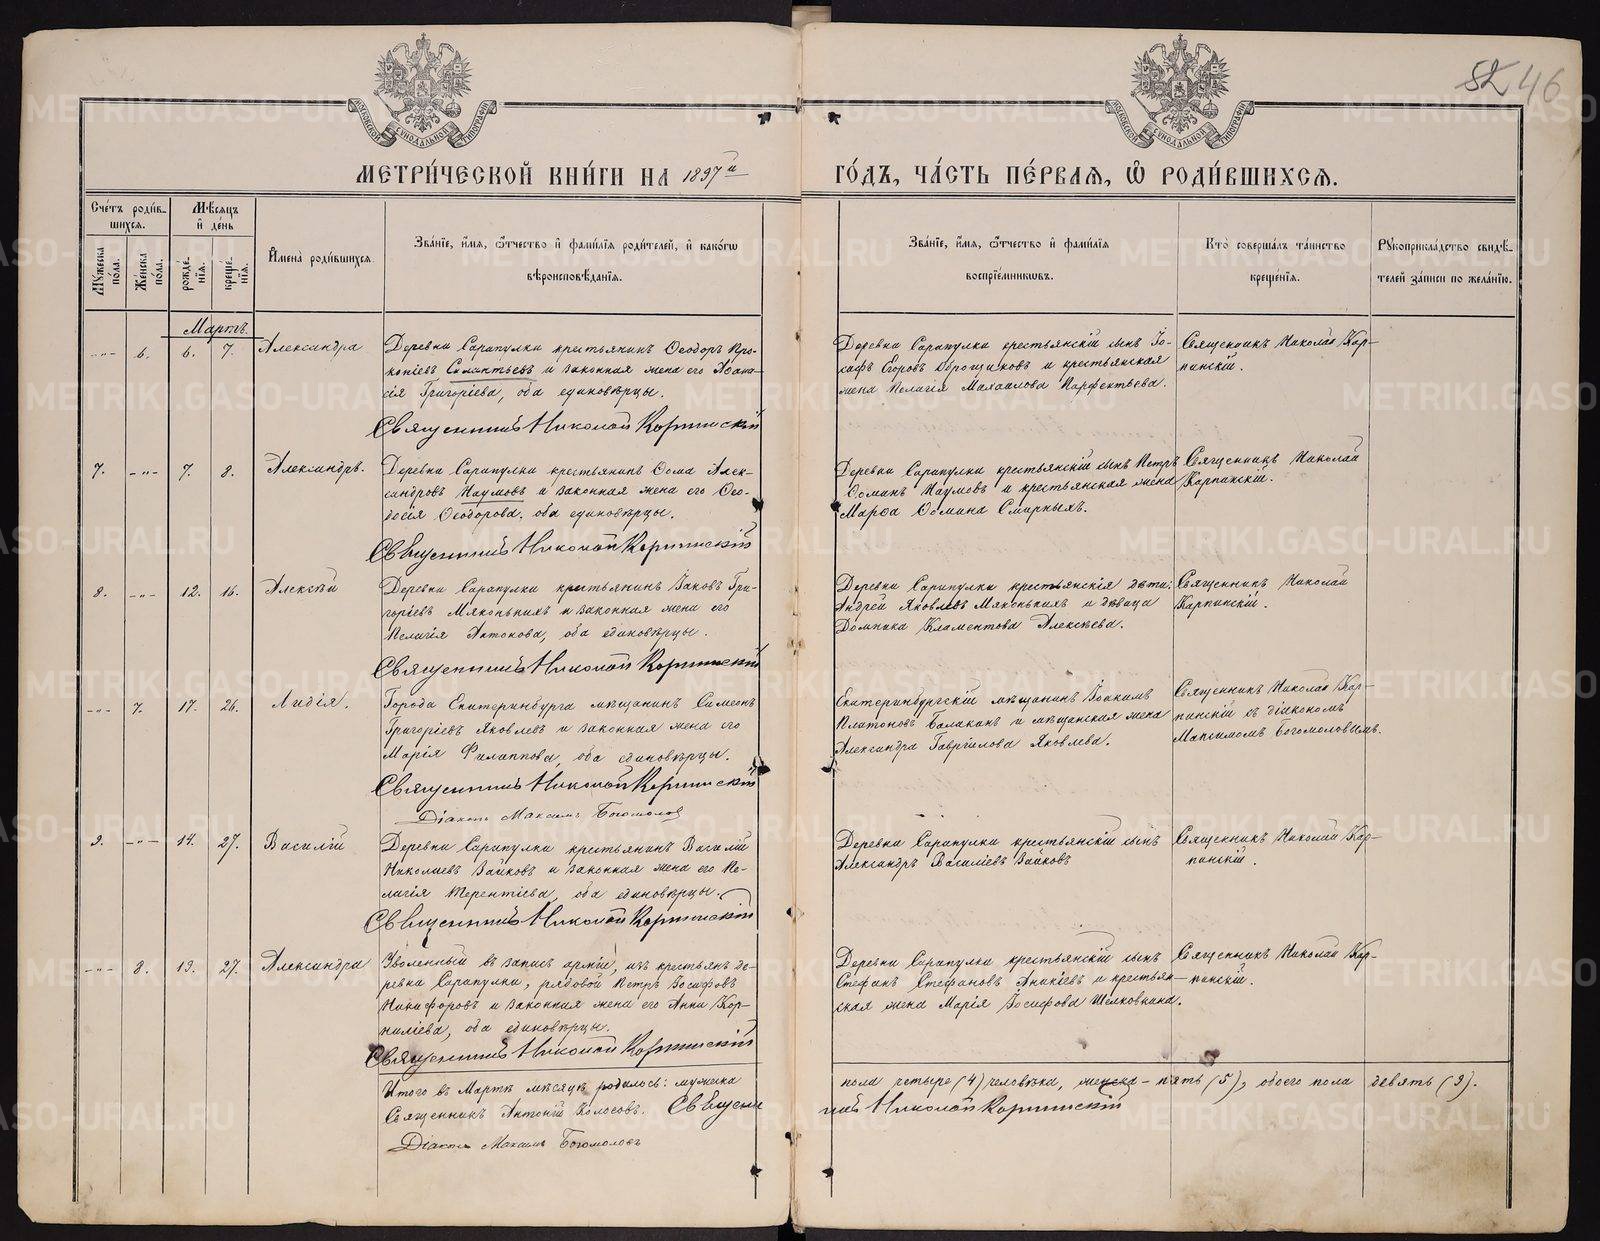 52 46
МОСКОВСКОЙ СѴНОДАЛЬНОЙ ТИПОГРАФІИ
МОСКОВСКОЙ СѴНОДАЛЬНОЙ ТИПОГРАФІИ
МЕТРИ́ЧЕСКОЙ КНИ́ГИ НА 1897й ГО́ДЪ, ЧА́СТЬ ПЕ́РВАѦ, Ѽ РОДИ́ВШИХСѦ.
Сче́тъ роди́в-
шихсѧ.
Мꙋжеска по́ла.
Же́нска по́ла.
Мѣ́сѧцъ
и҆ де́нь
рожде́нїѧ.
креще́нїѧ.
И҆мена̀ роди́вшихсѧ
Зва́нїе, и҆́мѧ, ѻ҆́тчество и҆ фами́лїѧ роди́телей, и҆ како́гѡ
вѣроисповѣ́данїѧ.
Зва́нїе, и҆́мѧ, ѻ҆́тчество и҆ фами́лїѧ
воспрїе́мникѡвъ.
Кто̀ соверша́лъ та́инство
креще́нїѧ.
Рꙋкоприкла́дство свидѣ́-
телей за́писи по жела́нїю.
Мартъ.
-"- 6. 6. 7. Александра
Деревни Сарапулки крестьянинъ Ѳеодоръ Про-
копіевъ Силантьевъ и законная жена его Аѳана-
сія Григоріева, оба единовѣрцы.
Священникъ Николай Карпинскій
Деревни Сарапулки крестьянскій сынъ Іо-
сафъ Егоровъ Оброщиковъ и крестьянская
жена Пелагія Михаилова Парфентьева.
Священникъ Николай Кар-
пинскій.
7. -"- 7. 8. Александръ.
Деревни Сарапулки крестьянинъ Ѳома Алек-
сандровъ Наумовъ и законная жена его Ѳео-
досія Ѳеодорова, оба единовѣрцы.
Священникъ Николай Карпинскій
Деревни Сарапулки крестьянскій сынъ Петръ
Ѳоминъ Наумовъ и крестьянская жена
Марѳа Ѳомина Смирныхъ.
Священникъ Николай
Карпинскій.
8. -"- 12. 16. Алексѣй
Деревни Сарапулки крестьянинъ Іаковъ Гри-
горіевъ Мяконькихъ и законная жена его
Пелагія Антонова, оба единовѣрцы.
Священникъ Николай Карпинскій
Деревни Сарапулки крестьянскія дѣти:
Андрей Яковлевъ Мяконькихъ и дѣвица
Домника Климентова Алексѣева.
Священникъ Николай
Карпинскій.
-"- 7. 17. 26. Лидія.
Города Екатеринбурга мѣщанинъ Симеонъ
Григоріевъ Яковлевъ и законная жена его
Марія Филиппова, оба единовѣрцы.
Священникъ Николай Карпинскій
Діаконъ Максимъ Богомоловъ
Екатеринбургскій мѣщанинъ Іоакимъ
Платоновъ Балакинъ и мѣщанская жена
Александра Гавріилова Яковлева.
Священникъ Николай Кар-
пинскій съ діакономъ
Максимомъ Богомоловымъ.
9. -"- 14. 27. Василій
Деревни Сарапулки крестьянинъ Василій
Николаевъ Зайковъ и законная жена его Пе-
лагія Терентіева, оба единовѣрцы.
Священникъ Николай Карпинскій
Деревни Сарапулки крестьянскій сынъ
Александръ Василіевъ Зайковъ
Священникъ Николай Кар-
пинскій.
-"- 8. 19. 27. Александра
Уволенный въ запасъ арміи, изъ крестьянъ де-
ревни Сарапулки, рядовой Петръ Іосифовъ
Никифоровъ и законная жена его Анна Кор-
ниліева, оба единовѣрцы.
Священникъ Николай Карпинскій
Деревни Сарапулки крестьянскій сынъ
Стефанъ Стефановъ Аникіевъ и крестьян-
ская жена Марія Іосифова Шелковкина.
Священникъ Николай Кар-
пинскій.
Итого въ Мартѣ мѣсяцѣ родилось: мужска пола четыре (4) человѣка, женска - пять (5), обоего пола девять (9).
Священникъ Антоній Колосовъ. Священникъ Николай Карпинскій
Діаконъ Максимъ Богомоловъ